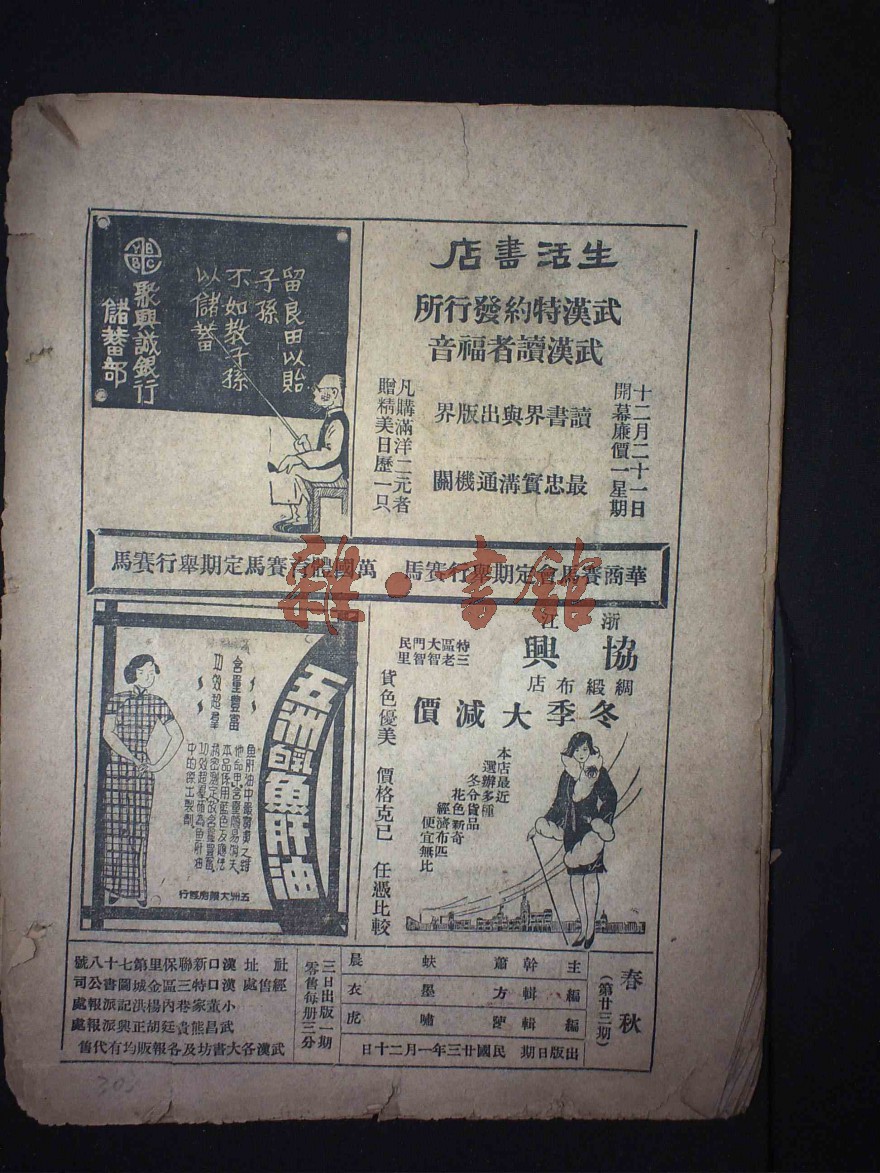 生活書店
武漢特約發行所
武漢讀者福音
十二月二十一日
開幕廉價一星期
讀書界與出版界
最忠實溝通機關
凡購滿洋二元者
贈精美日歷一只
YBBC
留良田以貽
子孫
不如教子孫
以儲蓄
聚興誠銀行
儲蓄部
華商賽馬會定期舉行賽馬
萬國體育賽馬定期舉行賽馬
雜·書館
浙江
協興
綢緞布店
特三區老大智門智民里
冬季大減價
本店最近
選辦多種
冬令貨品
花色新奇
經濟布匹
便宜無比
貨色優美 價格克已 任憑比較
含量豐富
功效超羣
五洲白鳳魚肝油
五洲大藥房經行
春秋
(第廿三期)
主幹 蕭蚨晨
編輯 方墨衣
編輯 嘯虎
出版日期 民國廿三年一月二十日
三日出版一期
零售每册三分
社址 漢口新聯保里第七十八號
經售處 漢口特三區金城圖書公司
小董家巷內楊洪記派報處
武昌熊廷貴胡正興派報處
武漢各大書坊及各報販均有代售